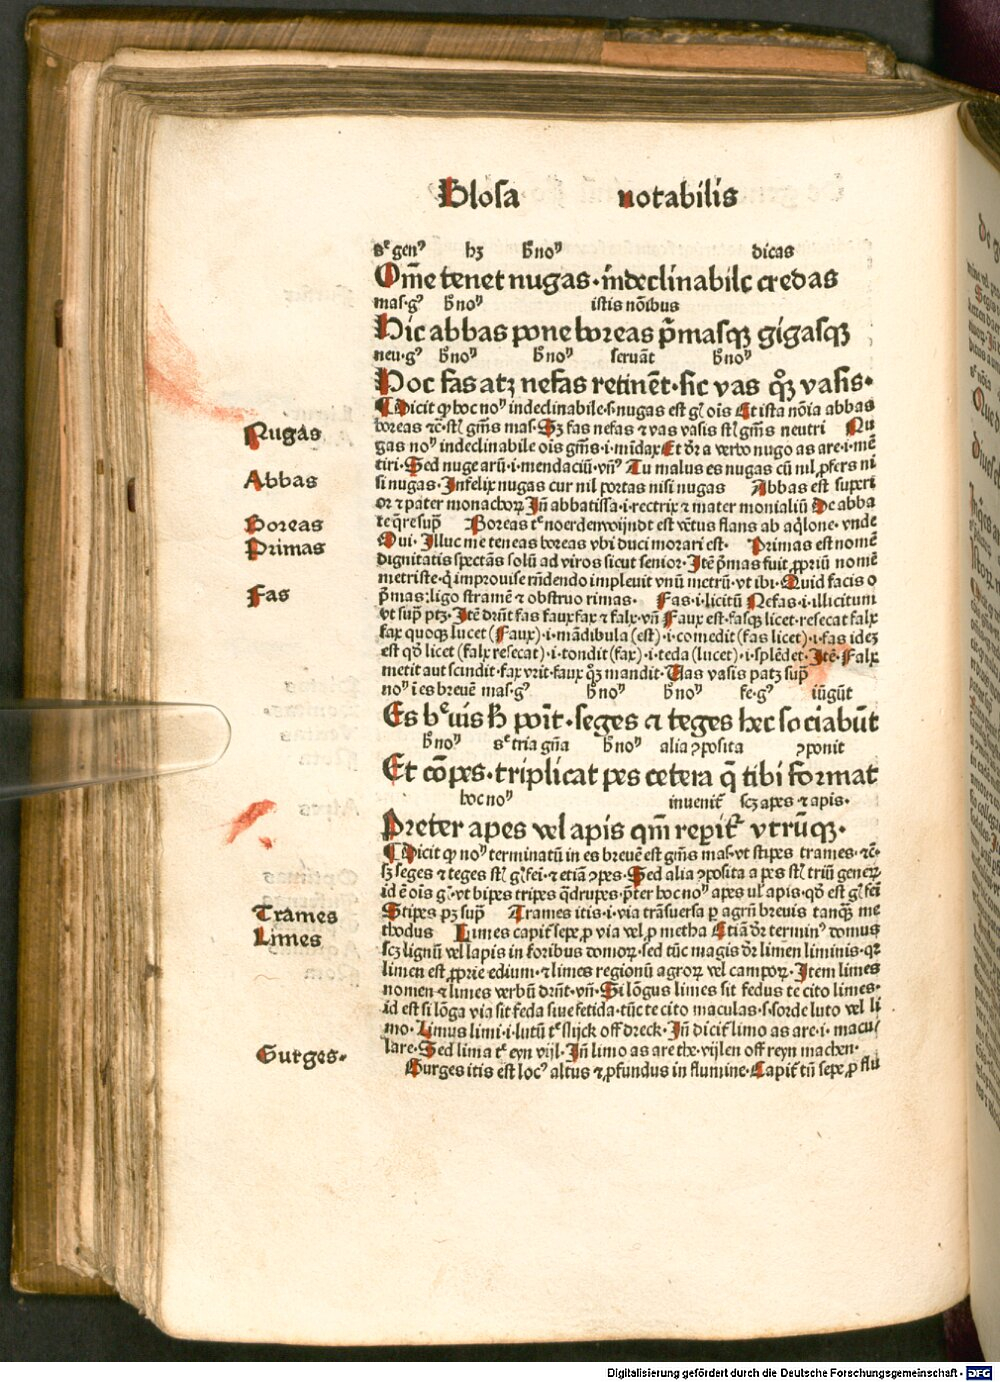 Glosa notabilis
sᵉ gen⁹ hȝ h̄ no⁹ dicas
Om̄e tenet nugas·īndeclinabile credas
mas·g⁹ h̄ no⁹ istis nōibus
Hic abbas pone boreas p̄masqꝫ gigasqꝫ
neu·g⁹ h̄ no⁹ h̄ no⁹ seruāt h̄ no⁹
Hoc fas atꝫ nefas retinēt·sic vas qꝫ̄ vasis·
Dicit ꝙ hoc no⁹ indeclinabile·s·nugas est gͥ ois Et ista nōia abbas
boreas ⁊c̄·stͥ gm̄s mas·Sꝫ fas nefas ⁊ vas vasis stͥ gm̄s neutri Nu
gas no⁹ indeclinabile ois gm̄s·i·mēdax Et d̄r a verbo nugo as are·i·mē
tiri·Sed nuge arū·i·mendaciū·vn̄⁹ Tu malus es nugas cū nil ꝓfers ni
si nugas·Infelix nugas cur nil portas nisi nugas Abbas est superi
or ⁊ pater monachoꝝ Jn̄ abbatissa·i·rectrix ⁊ mater monialiū De abba
te q̄resup̄ Boreas tᵉ noerdenwijndt est vētus flans ab aq̄lone·vnde
Oui·Illuc me teneas boreas vbi duci morari est· Primas est nomē
dignitatis spectās solū ad viros sicut senior·Itē p̄mas fuit ꝓpriū nomē
metriste·q̄ improuise rn̄dendo impleuit vnū metrū·vt ibi·Quid facis o
p̄mas:ligo stramē ⁊ obstruo rimas· Fas·i·licitū Nefas·i·illicitum
vt sup̄ ptꝫ·Itē dn̄t fas faux fax ⁊ falx·vn̄ Faux est·fasqꝫ licet·resecat falx
fax quoqꝫ lucet (Faux)·i·mādibula (est)·i·comedit (fas licet)·i·fas ideꝫ
est qō licet (falx resecat)·i·tondit (fax)·i·teda (lucet)·i·splēdet·Itē·Falx
metit aut scindit·fax vrit·faux qꝫ̄ mandit·Vas vasis patꝫ sup̄
no⁹ ī es breuē mas·g⁹ h̄ no⁹ h̄ no⁹ fe·g⁹ iūgūt
Es bᵉuis h̄ poīt·seges ⁊ teges hec sociabūt
h̄ no⁹ sᵉ tria gn̄a h̄ no⁹ alia ꝓposita ꝓponit
Et cōpes·triplicat pes cetera q̄ tibi format
hoc no⁹ inuenit̄ scꝫ apes ⁊ apis·
Preter apes vel apis qm̄ repīt̄ vtrūqꝫ·
Dicit ꝙ no⁹ terminatū in es breuē est gm̄s mas·vt stipes trames·⁊c̄·
sꝫ seges ⁊ teges stͥ gͥ fei·⁊ etiā ꝓpes·Sed alia ꝓposita a pes stͥ triū generꝝ
id ē ois gͥ·vt bipes tripes q̄drupes·p̄ter hoc no⁹ apes ul̄ apis·qō est gͥ fei
Stipes pꝫ sup̄ Trames itis·i·via trāsuersa p̱ agrū breuis tanqꝫ̄ me
thodus Limes capit̄ sepe ꝓ via vel ꝓ metha Etiā d̄r termin⁹ domus
scꝫ lignū vel lapis in foribus domoꝝ·sed tūc magis d̄r limen liminis·qꝛ
limen est ꝓprie edium·⁊ limes regionū agroꝝ vel campoꝝ·Item limes
nomen ⁊ limes verbū dn̄t·vn̄·Si lōgus limes sit fedus te cito limes·
id est si lōga via sit feda siue fetida·tūc te cito maculas·s·sorde luto vel li
mo·Limus limi·i·lutū tᵉ slijck off dreck·Jn̄ dicit̄ limo as are·i·macu/
lare·Sed lima tᵉ eyn vijl·Jn̄ limo as are the·vijlen off reyn machen·
Gurges itis est loc⁹ altus ⁊ ꝓfundus in flumine·Capit̄ tn̄ sepe ꝓ flu
Nugas
Abbas
Boreas
Primas
Fas
Trames
Limes
Gurges·
Digitalisierung gefördert durch die Deutsche Forschungsgemeinschaft · DFG